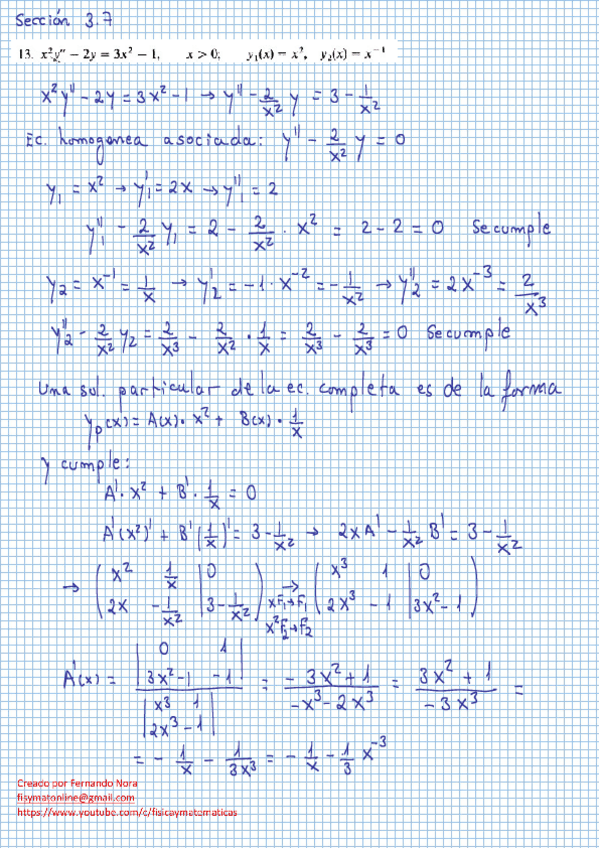 Sección 3.7
13. x²y″ − 2y = 3x² − 1, x > 0; y₁(x) = x², y₂(x) = x⁻¹
x²y″ − 2y = 3x² − 1 → y″ − 2/x² y = 3 − 1/x²
Ec. homogenea asociada: y″ − 2/x² y = 0
y₁ = x² → y₁′ = 2x → y₁″ = 2
y₁″ − 2/x² y₁ = 2 − 2/x² · x² = 2 − 2 = 0 Se cumple
y₂ = x⁻¹ = 1/x → y₂′ = −1 · x⁻² = −1/x² → y₂″ = 2x⁻³ = 2/x³
y₂″ − 2/x² y₂ = 2/x³ − 2/x² · 1/x = 2/x³ − 2/x³ = 0 Se cumple
Una sol. particular de la ec. completa es de la forma
yp(x) = A(x) · x² + B(x) · 1/x
y cumple:
A′ · x² + B′ · 1/x = 0
A′(x²)′ + B′(1/x)′ = 3 − 1/x² → 2xA′ − 1/x² B′ = 3 − 1/x²
→ ( x² 1/x | 0 ) → ( x³ 1 | 0 )
( 2x −1/x² | 3 − 1/x² ) xF₁→F₁ x²F₂→F₂ ( 2x³ −1 | 3x² − 1 )
A′(x) = | 0 1 ; 3x² − 1 −1 | / | x³ 1 ; 2x³ −1 | = −3x² + 1 / −x³ − 2x³ = 3x² + 1 / −3x³ =
= −1/x − 1/3x³ = −1/x − 1/3 x⁻³
Creado por Fernando Nora
fisymatonline@gmail.com
https://www.youtube.com/c/fisicaymatematicas